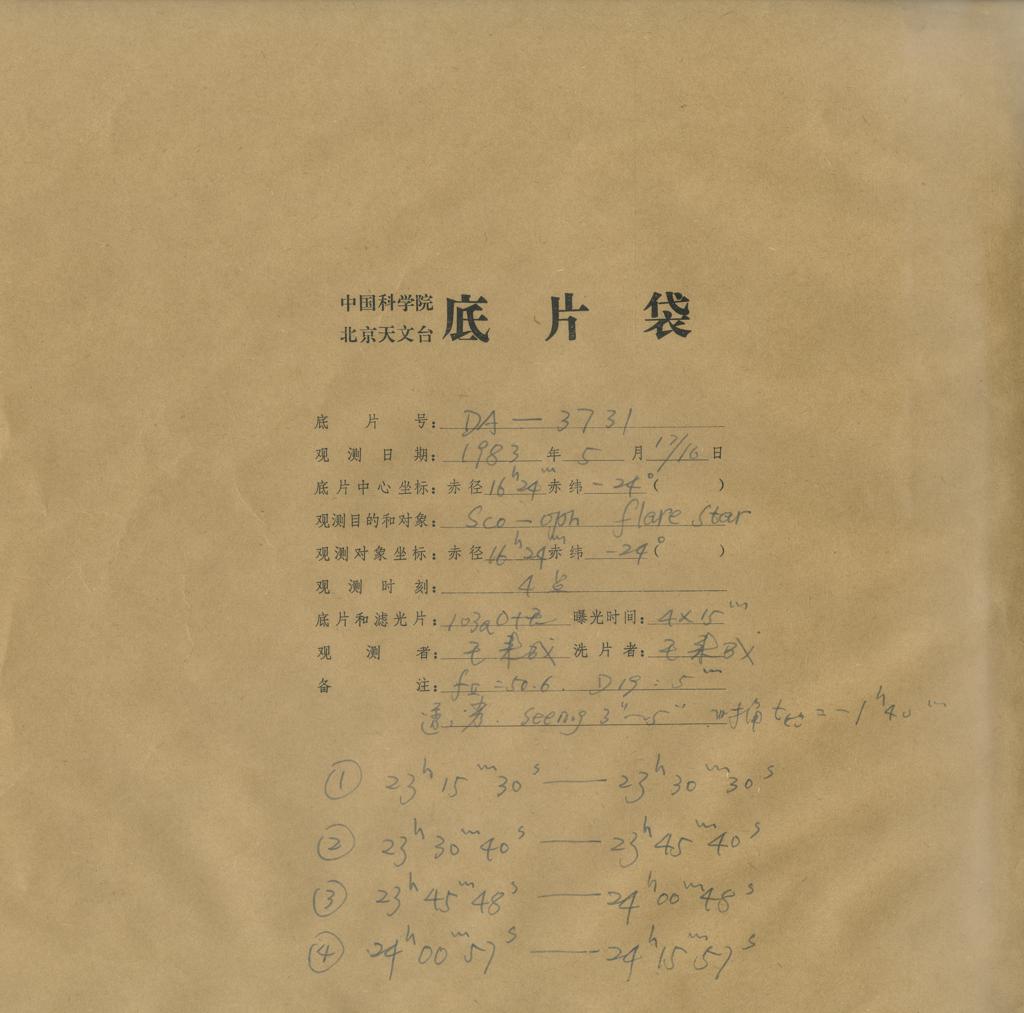 中国科学院
北京天文台 底片袋
底片号: DA — 3731
观测日期: 1983 年 5 月 17/16 日
底片中心坐标: 赤径 16ʰ24ᵐ 赤纬 -24° ( )
观测目的和对象: Sco-oph flare star
观测对象坐标: 赤径 16ʰ24ᵐ 赤纬 -24° ( )
观测时刻: 4
底片和滤光片: 103aO+ 曝光时间: 4×15ᵐ
观测者: 洗片者:
备注: =50.6. D19: 5ᵐ
seeing 3"~5" 时角 = -1ʰ40ᵐ
① 23ʰ15ᵐ30ˢ —— 23ʰ30ᵐ30ˢ
② 23ʰ30ᵐ40ˢ —— 23ʰ45ᵐ40ˢ
③ 23ʰ45ᵐ48ˢ —— 24ʰ00ᵐ48ˢ
④ 24ʰ00ᵐ57ˢ —— 24ʰ15ᵐ57ˢ